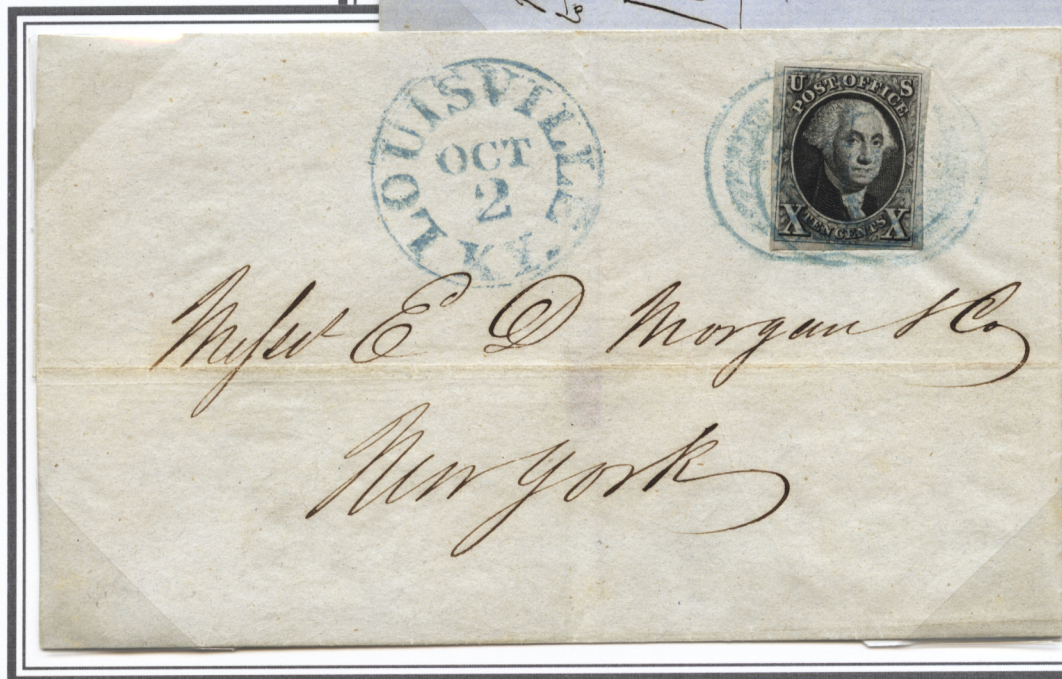 LOUISVILLE KY.
OCT
2
U S
POST OFFICE
X TEN CENTS X
Messrs E D Morgan & Co
New York